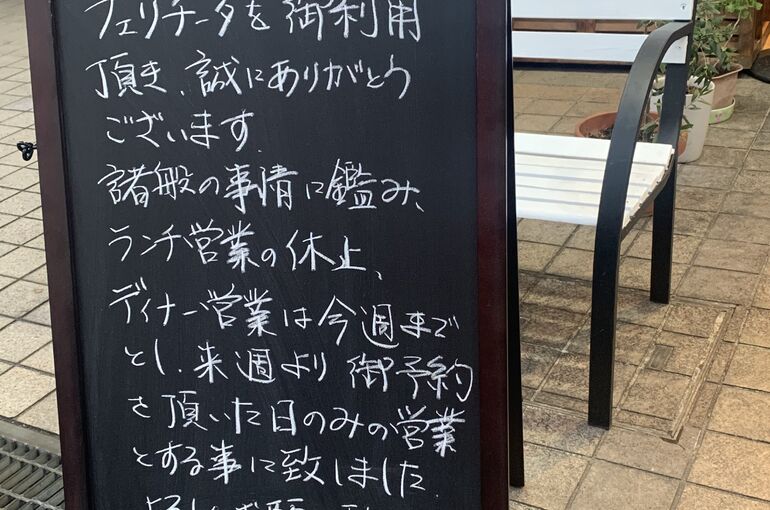 フェリチータを御利用
頂き、誠にありがとう
ございます.
諸般の事情に鑑み、
ランチ営業の休止、
ディナー営業は今週まで
とし、来週より御予約
を頂いた日のみの営業
とする事に致しました.